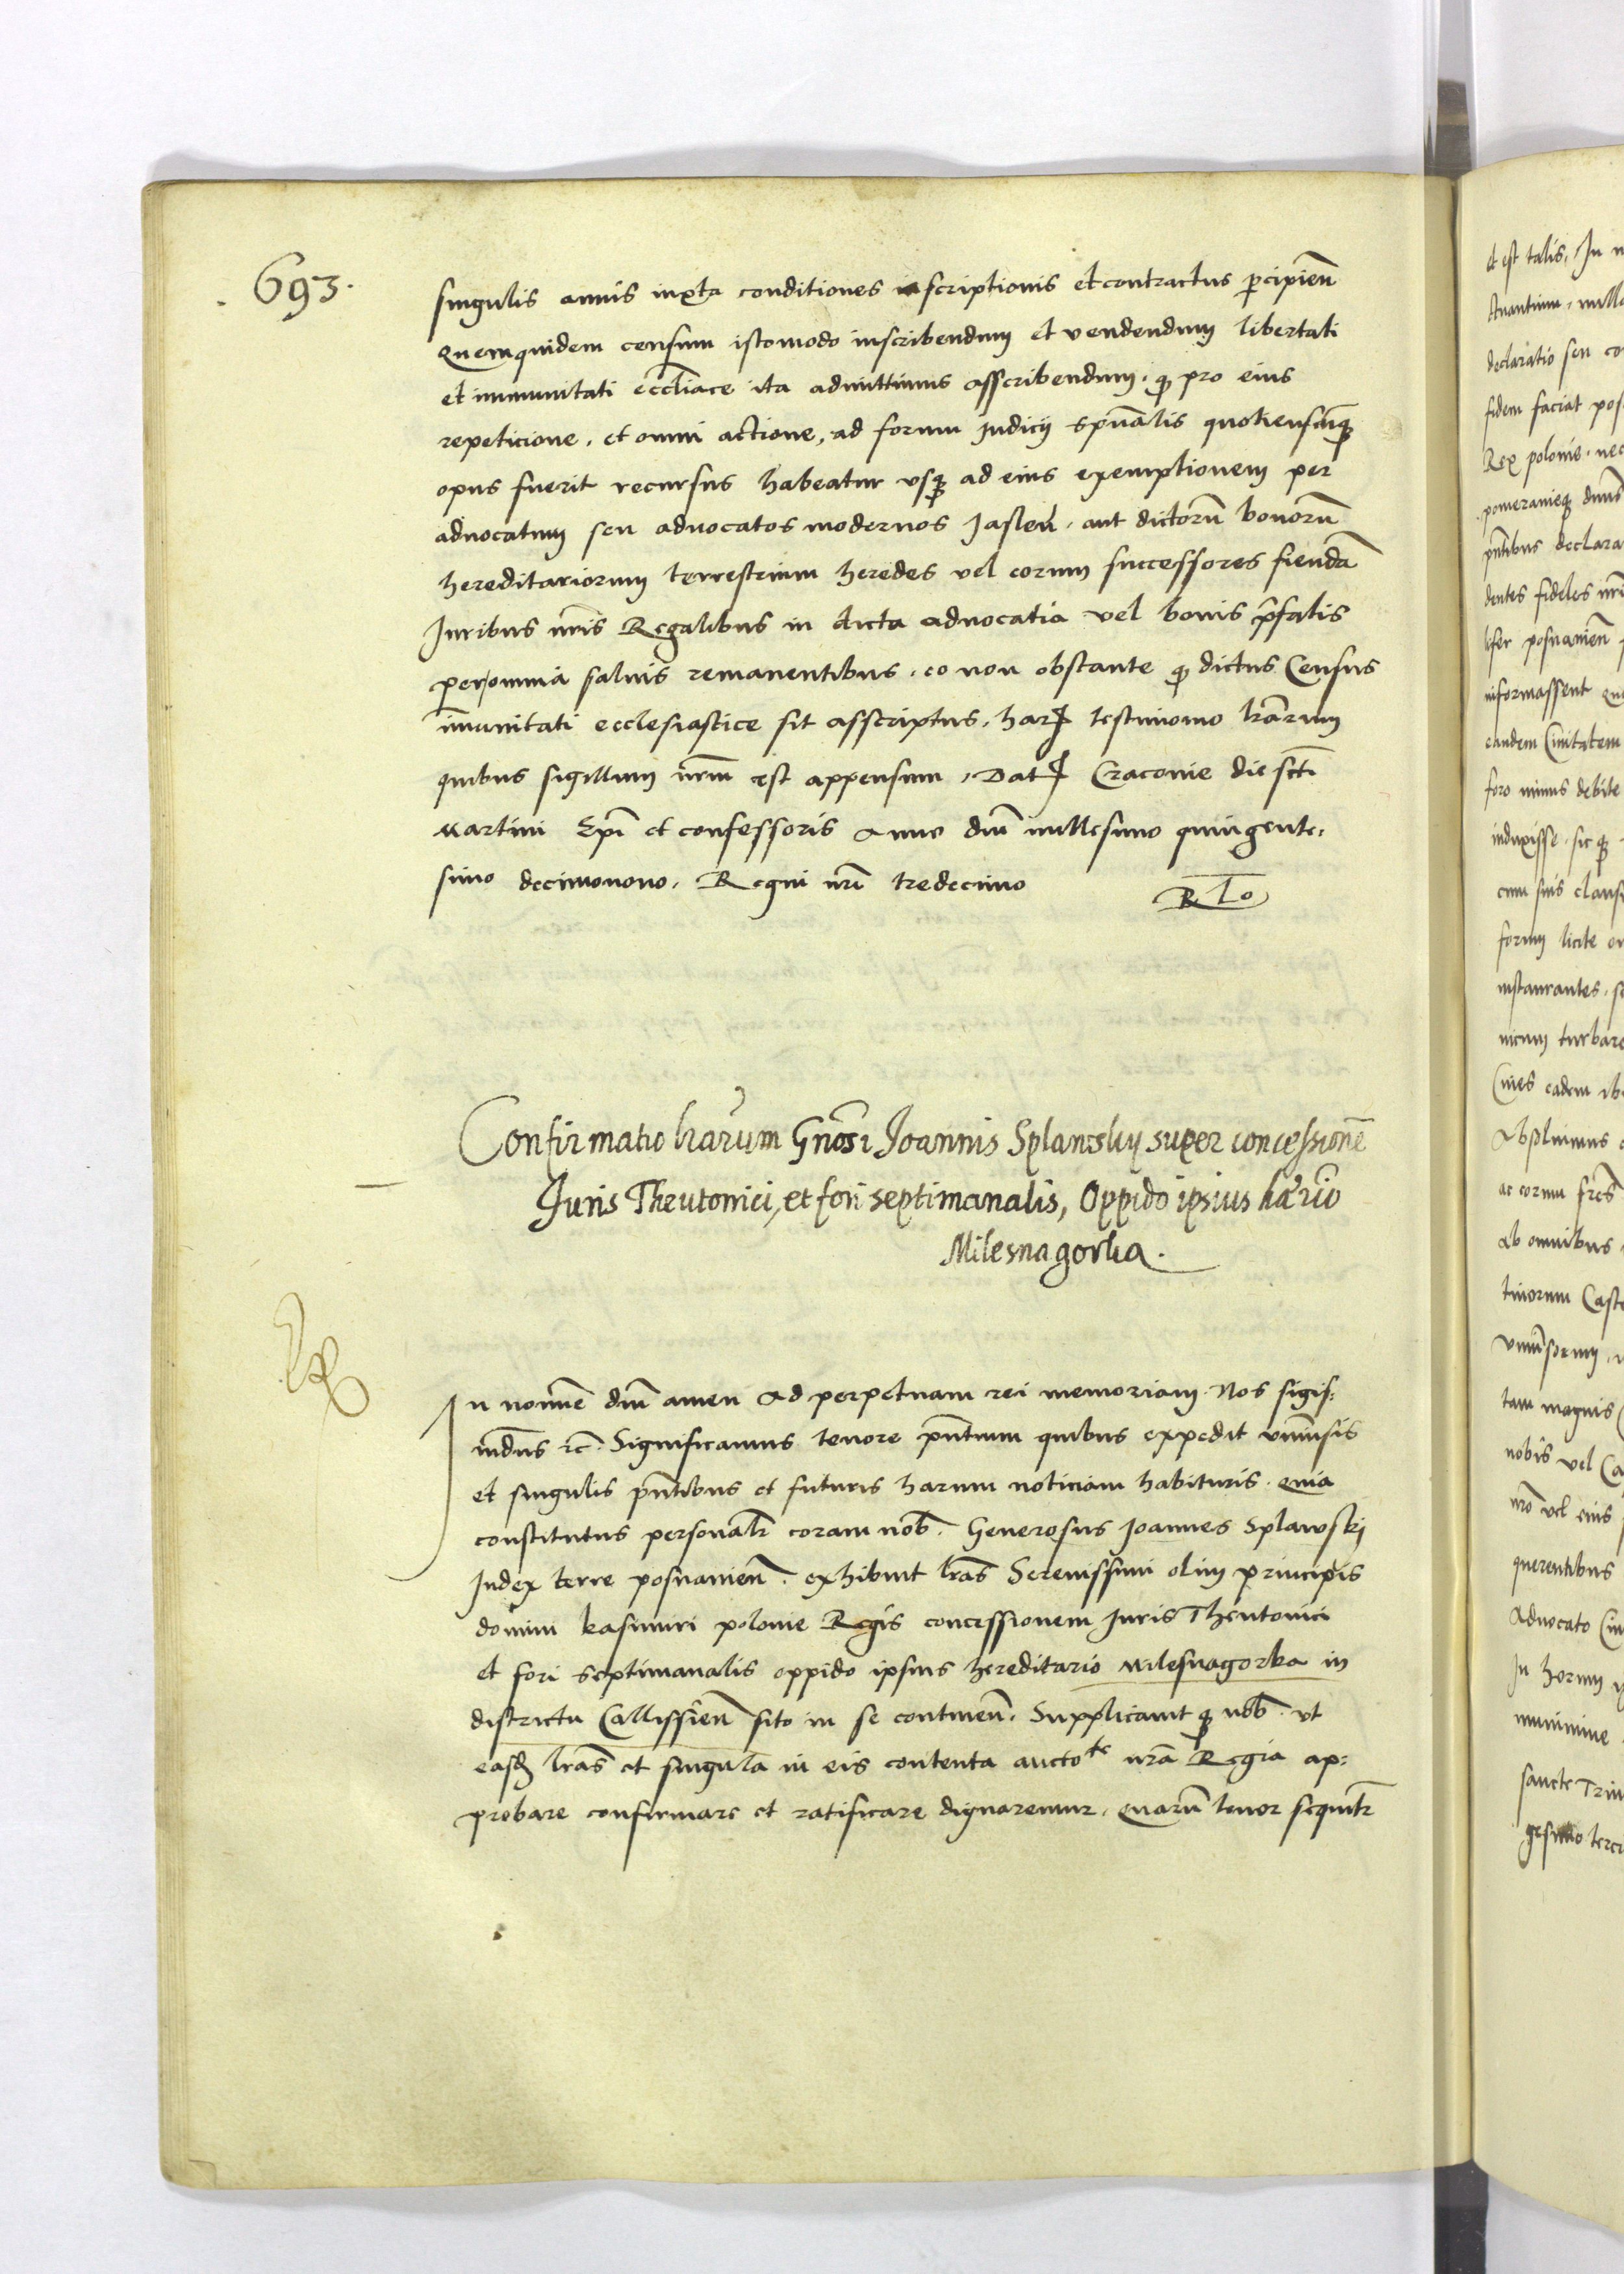 693.
singulis annis iuxta conditiones inscriptionis et contractus percipieñ
Quemquidem censum istomodo inscribendum et vendendum libertati
et immunitati eccl̃iace ita admittimus asscribendum. q̃ pro eius
repeticione, et omni actione, ad forum Judicij spũalis quotienscũq3
opus fuerit recursus habeatur vsq3 ad eius exemptionem per
advocatum seu advocatos modernos Jasleñ. aut dictorũ bonorũ
hereditariorum terrestrium heredes vel eorum successores fiendã
Juribus nr̃is Regalibus in dicta advocatia vel bonis p̃fatis
per omnia salvis remanentibus. eo non obstante q̃ dictus Census
im̃unitati ecclesiastice sit asscriptus, har̃ testimonio lrãrum
quibus sigillum nr̃um est appensum, Dat̃ Cracovie die scti
Martini Ep̃i et confessoris Anno dñi millesimo quingente-
simo decimonono. Regni nr̃i tredecimo
R To
Confirmatio lrãrum Gñosi Joannis Splawskij super concessionẽ
Juris Theutonici, et fori septimanalis, Oppido ipsius hær̃io
Milesnagorka.
In nomine dñi amen Ad perpetuam rei memoriam. Nos sigis-
mdũs rc̃. Significamus tenore p̃ntium quibus expedit vniũsis
et singulis p̃ntibus et futuris harum noticiam habituris. quia
constitutus personalr̃ coram nob̃. Generosus Joannes Splawski
Judex terre posnanieñ. exhibuit lrãs Serenissimi olim principis
domini kasimiri polonie Regis concessionem Juris Theutonici
et fori septimanalis oppido ipsius hereditario Milesnagorka in
districtu Callissieñ sito in se contineñ. Supplicavit q3 nob̃. vt
easd̃ lrãs et singula in eis contenta aucto^te nrã Regia ap-
probare confirmare et ratificare dignaremur. quarũ tenor sequitr̃
et est talis, In n
declaratio seu co
fidem faciat pos
Rex polonie. nec
pomeranieq3 dñus
p̃ntibus declara
dentes fideles nr̃i
lifer posnanieñ
informassent qu
eandem Civitatem
foro minus debite
induxisse. sic q3
cum suis clausu
forum licite
instaurantes. s
nicum turbare
Cives eadem ib
Absolvimus
ac eorum
Ab omnibus
tinorum Caste
tam magnis
nobis vel Ca
nr̃o vel eius
querentibus
Advocato Civ
In horum
munimine
sancte Trin
gesimo terci